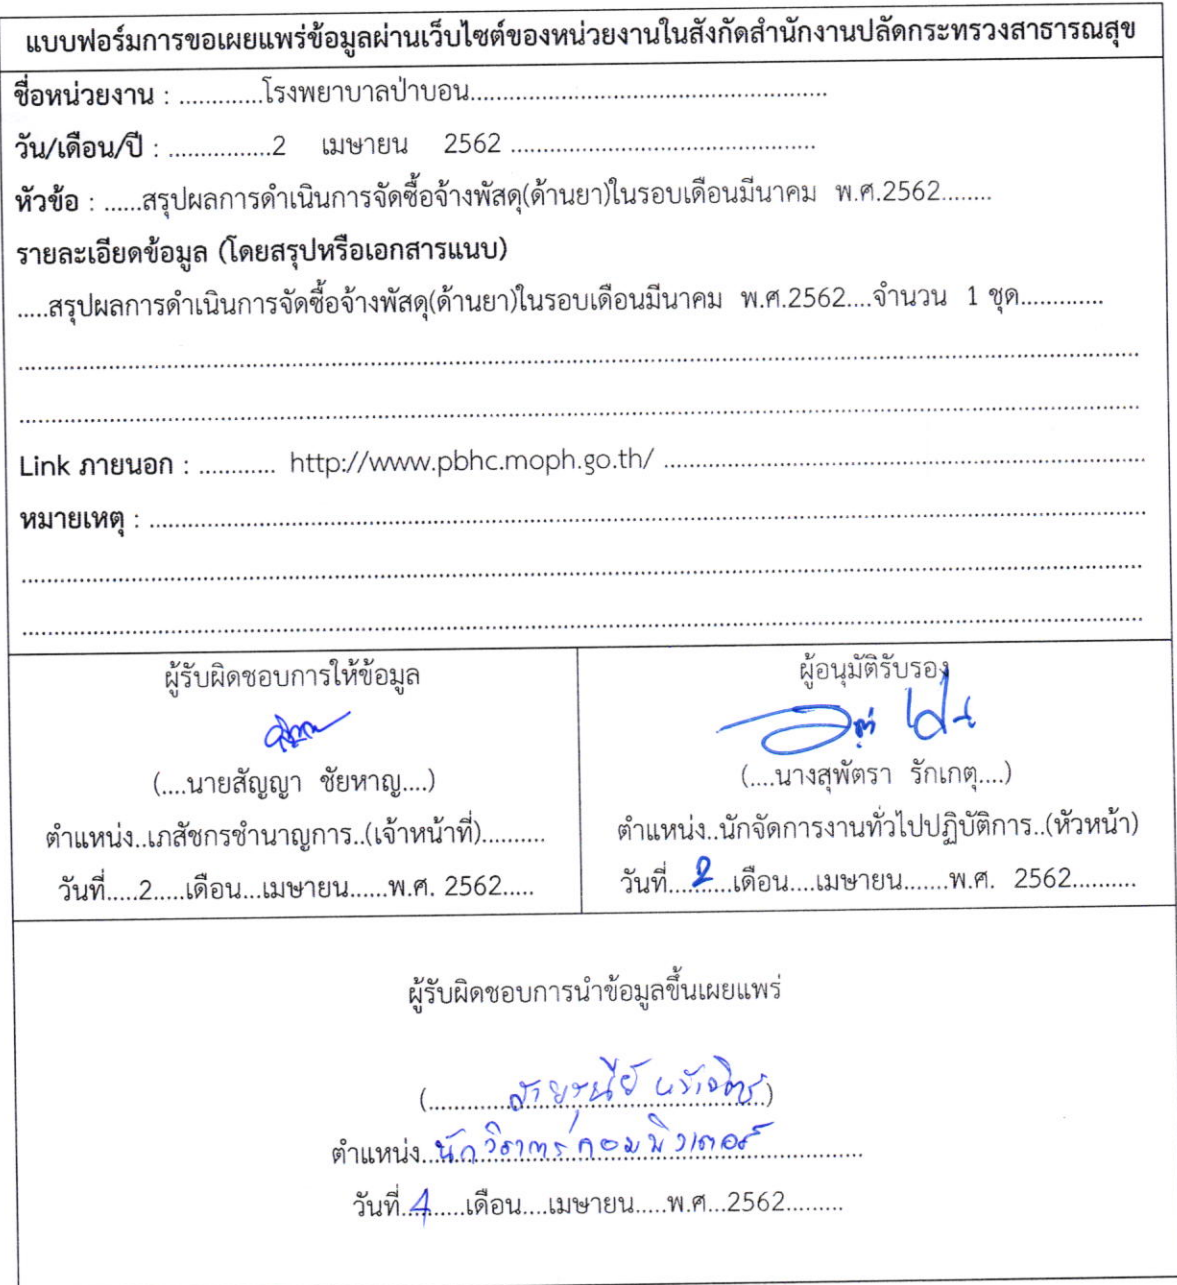 แบบฟอร์มการขอเผยแพร่ข้อมูลผ่านเว็บไซต์ของหน่วยงานในสังกัดสำนักงานปลัดกระทรวงสาธารณสุข
ชื่อหน่วยงาน : .............โรงพยาบาลป่าบอน.......................................................
วัน/เดือน/ปี : ................2 เมษายน 2562 ...............................................
หัวข้อ : ......สรุปผลการดำเนินการจัดซื้อจ้างพัสดุ(ด้านยา)ในรอบเดือนมีนาคม พ.ศ.2562........
รายละเอียดข้อมูล (โดยสรุปหรือเอกสารแนบ)
.....สรุปผลการดำเนินการจัดซื้อจ้างพัสดุ(ด้านยา)ในรอบเดือนมีนาคม พ.ศ.2562....จำนวน 1 ชุด.............
Link ภายนอก : ............ http://www.pbhc.moph.go.th/ ..........................................................................
หมายเหตุ : ..........................................................................
ผู้รับผิดชอบการให้ข้อมูล
(....นายสัญญา ชัยหาญ....)
ตำแหน่ง..เภสัชกรชำนาญการ..(เจ้าหน้าที่)..........
วันที่.....2.....เดือน...เมษายน......พ.ศ. 2562.....
ผู้อนุมัติรับรอง
(....นางสุพัตรา รักเกตุ....)
ตำแหน่ง..นักจัดการงานทั่วไปปฏิบัติการ..(หัวหน้า)
วันที่.....2.....เดือน....เมษายน.......พ.ศ. 2562..........
ผู้รับผิดชอบการนำข้อมูลขึ้นเผยแพร่
ตำแหน่ง..นักวิชาการคอมพิวเตอร์
วันที่..4.......เดือน....เมษายน.....พ.ศ...2562.........